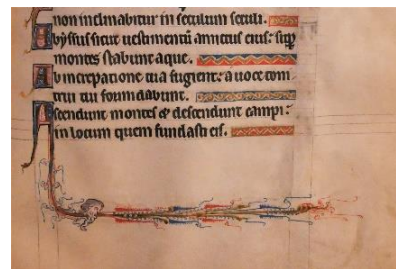 non inclinabitur in seculum seculi.
Abyssus sicut uestimentū amictus eius: sup
montes stabunt aque.
Ab increpatione tua fugient: a uoce toni
trui tui formidabunt.
Ascendunt montes et descendunt campi:
in locum quem fundasti eis.